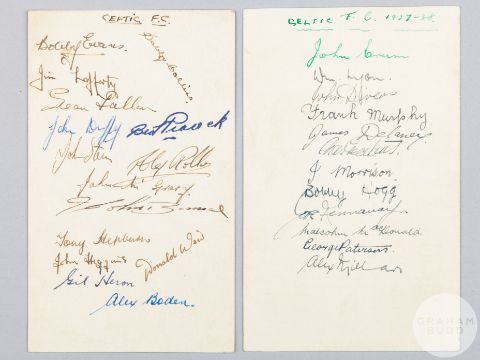 CELTIC F.C.
Bobby Evans.
Jim Lafferty
Sean Fallon
John Duffy
Bert Peacock
John
Alex Rollo
John Mc Grory
Tony Hepburn
John Higgins
Donald Weir
Gil Heron
Alex Boden.
CELTIC F. C. 1937-38.
John Crum
Wm Lyon.
John Divers
Frank Murphy
James Delaney
J. Morrison.
Bobby Hogg
Malcolm MacDonald
George Paterson.
Alex Millar
GRAHAM
BUDD